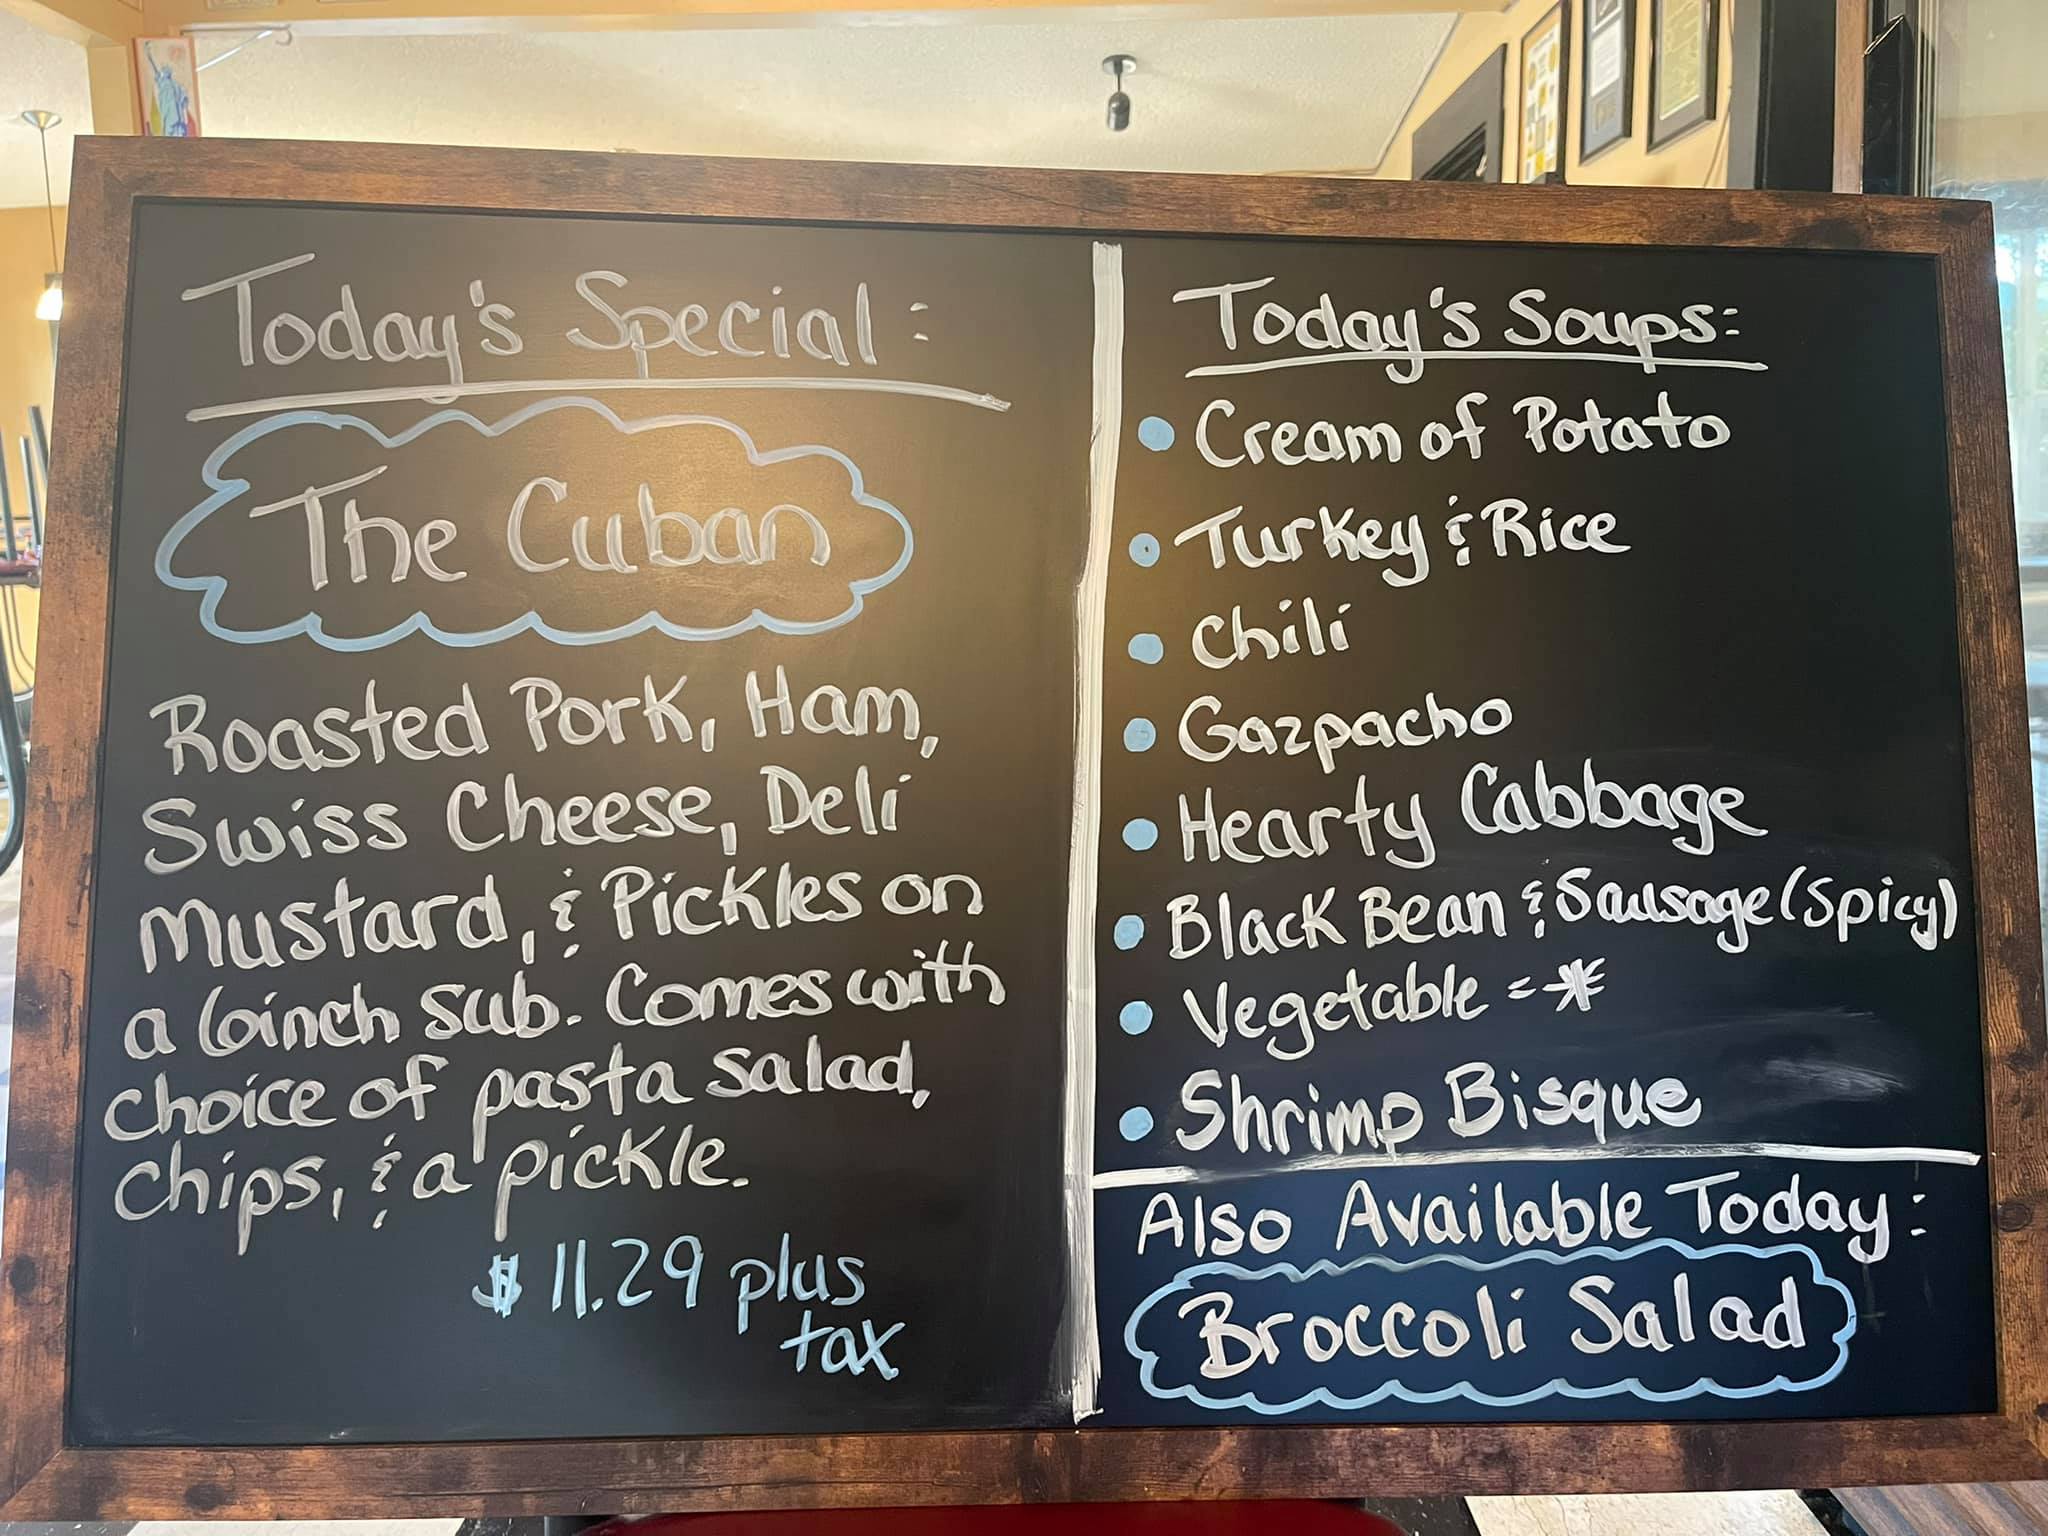 Today's Special:
The Cuban
Roasted Pork, Ham,
Swiss Cheese, Deli
Mustard, & Pickles on
a 6inch sub. Comes with
choice of pasta salad,
chips, & a pickle.
$11.29 plus
tax
Today's Soups:
• Cream of Potato
• Turkey & Rice
• Chili
• Gazpacho
• Hearty Cabbage
• Black Bean & Sausage (spicy)
• Vegetable - *
• Shrimp Bisque
Also Available Today:
Broccoli Salad